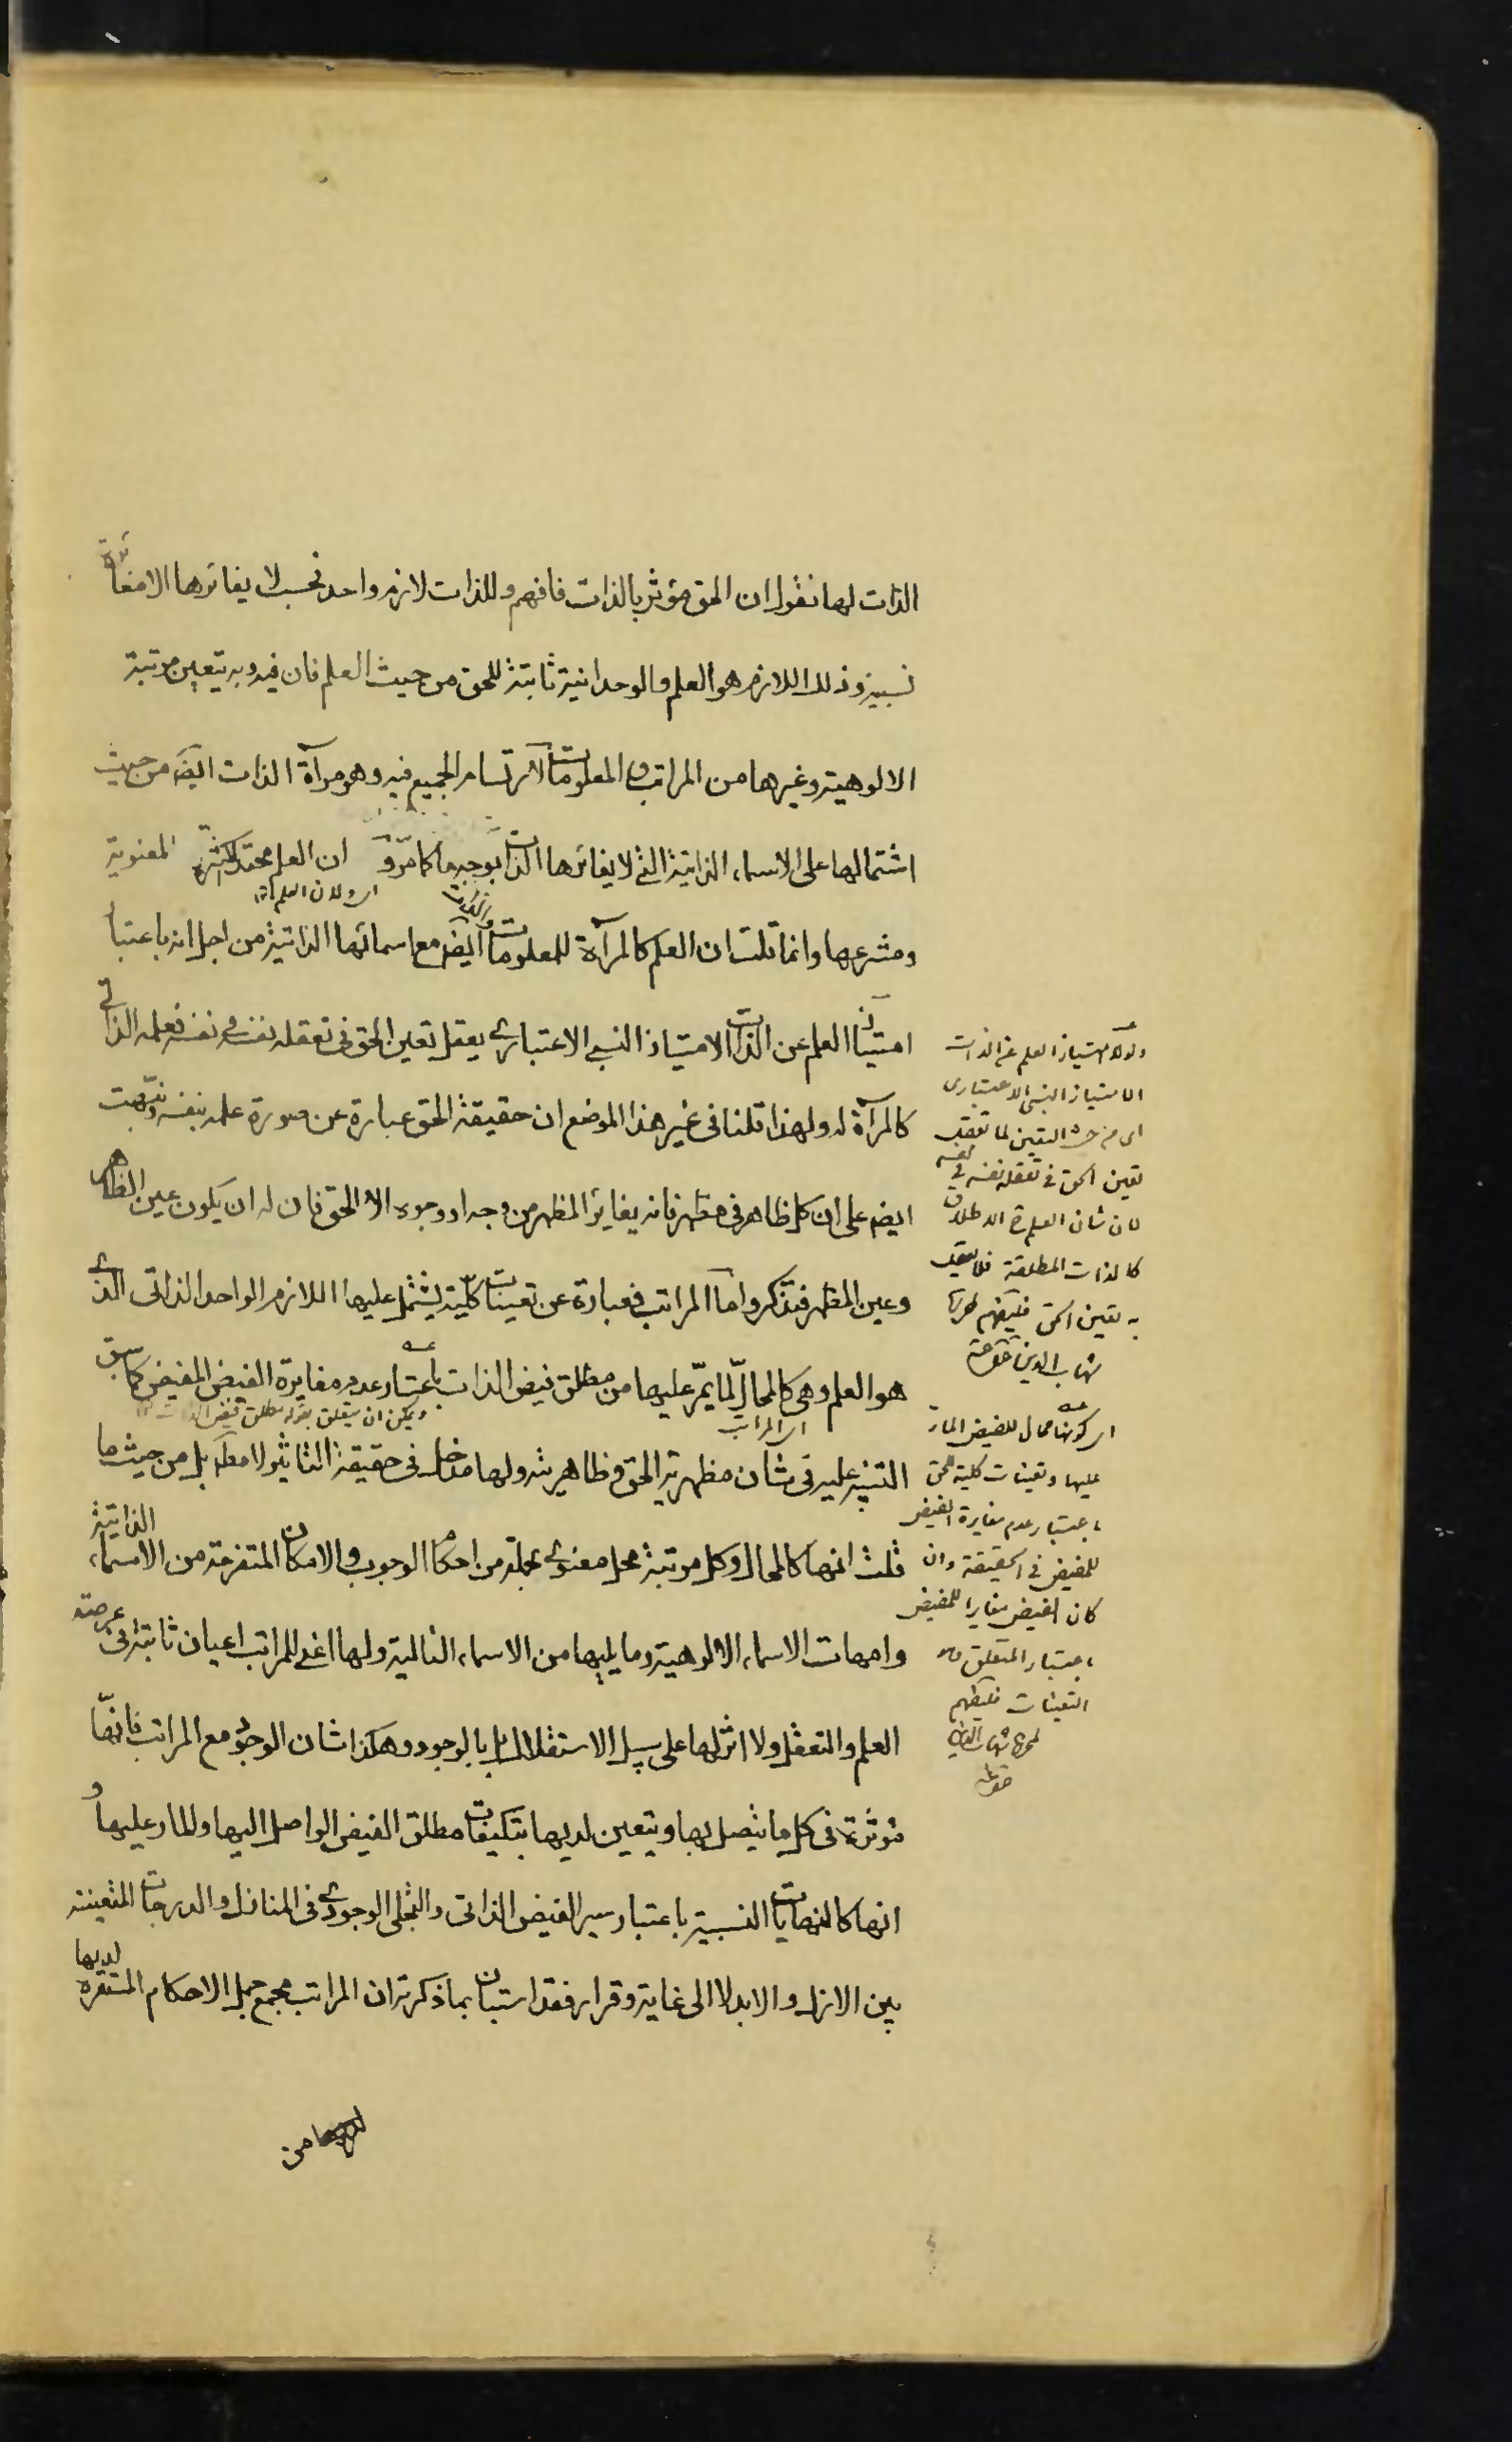 الذات لها نقول ان الحق مؤثر بالذات فافهم وللذات لازم واحد فحسب لا يغايرها الا مغايرة
نسبية وذلك اللازم هو العلم والوحدانية ثابتة للحق من حيث العلم فان فيه وبه يتعين مرتبة
الالوهية وغيرها من المراتب والمعلومات لارتسام الجميع فيه وهو مرآة الذات ايضا من حيث
اشتمالها على الاسماء الذاتية التي لا يغايرها الذات بوجه ما كما مر و ان العلم محتد الكثرة المعنوية
ومشرعها وانما قلت ان العلم كالمرآة للمعلومات وللذات ايضا مع اسمائها الذاتية من اجل انه باعتبار
امتياز العلم عن الذات الامتياز النسبي الاعتباري يعقل تعين الحق في تعقله نفسه في نفسه فعلمه الذاتي
كالمرآة له ولهذا قلنا في غير هذا الموضع ان حقيقة الحق عبارة عن صورة علمه بنفسه ونبهت
ايضا على ان كل ظاهر في مظهر فانه يغاير المظهر من وجه او وجوه الا الحق فان له ان يكون عين الظاهر
وعين المظهر فتذكر واما المراتب فعبارة عن تعينات كلية يشتمل عليها اللازم الواحد الذاتي الذي
هو العلم وهي كالمحال لما يمر عليها من مطلق فيض الذات باعتبار عدم مغايرة الفيض المفيض كما سبق
اى المراتب
ويمكن ان يتعلق بقوله مطلق فيض الذات
التنبيه عليه في شان مظهرية الحق وظاهريته ولها مدخل في حقيقة التاثير لا مطلقا بل من حيث ما
قلت انها كالمحال وكل مرتبة محل معنوي لجملة من احكام الوجوب والامكان المتفرعة من الاسماء الذاتية
وامهات الاسماء الالوهية وما يليها من الاسماء التالية ولها اعني للمراتب اعيان ثابتة في عرصة
العلم والتعقل ولا اثر لها على سبيل الاستقلال بل بالوجود وهكذا شان الوجود مع المراتب فانها
مؤثرة في كل ما يتصل بها ويتعين لديها بتكيفات مطلق الفيض الواصل اليها والمار عليها و
انها كالنهايات النسبية باعتبار سير الفيض الذاتي والتجلي الوجودي في المنازل والدرجات المتعينة
بين الازل والابد لا الى غاية وقرار فقد استبان بما ذكرته ان المراتب مجمع جمل الاحكام المستقرة لديها
من
ولولا امتياز العلم عن الذات
الامتياز النسبي الاعتباري
اى من حيث التعين لما تعقل
تعين الحق في تعقله نفسه في نفسه
لان شان العلم ح الاطلاق
كالذات المطلقة فلا يتعقل
به تعين الحق فليفهم
شهاب الدين
اى كونها محال للفيض المار
عليها وتعينات كلية للحق
باعتبار عدم مغايرة الفيض
للمفيض في الحقيقة وان
كان الفيض مغايرا للمفيض
باعتبار المتعلق
التعينات فليفهم
شهاب الدين